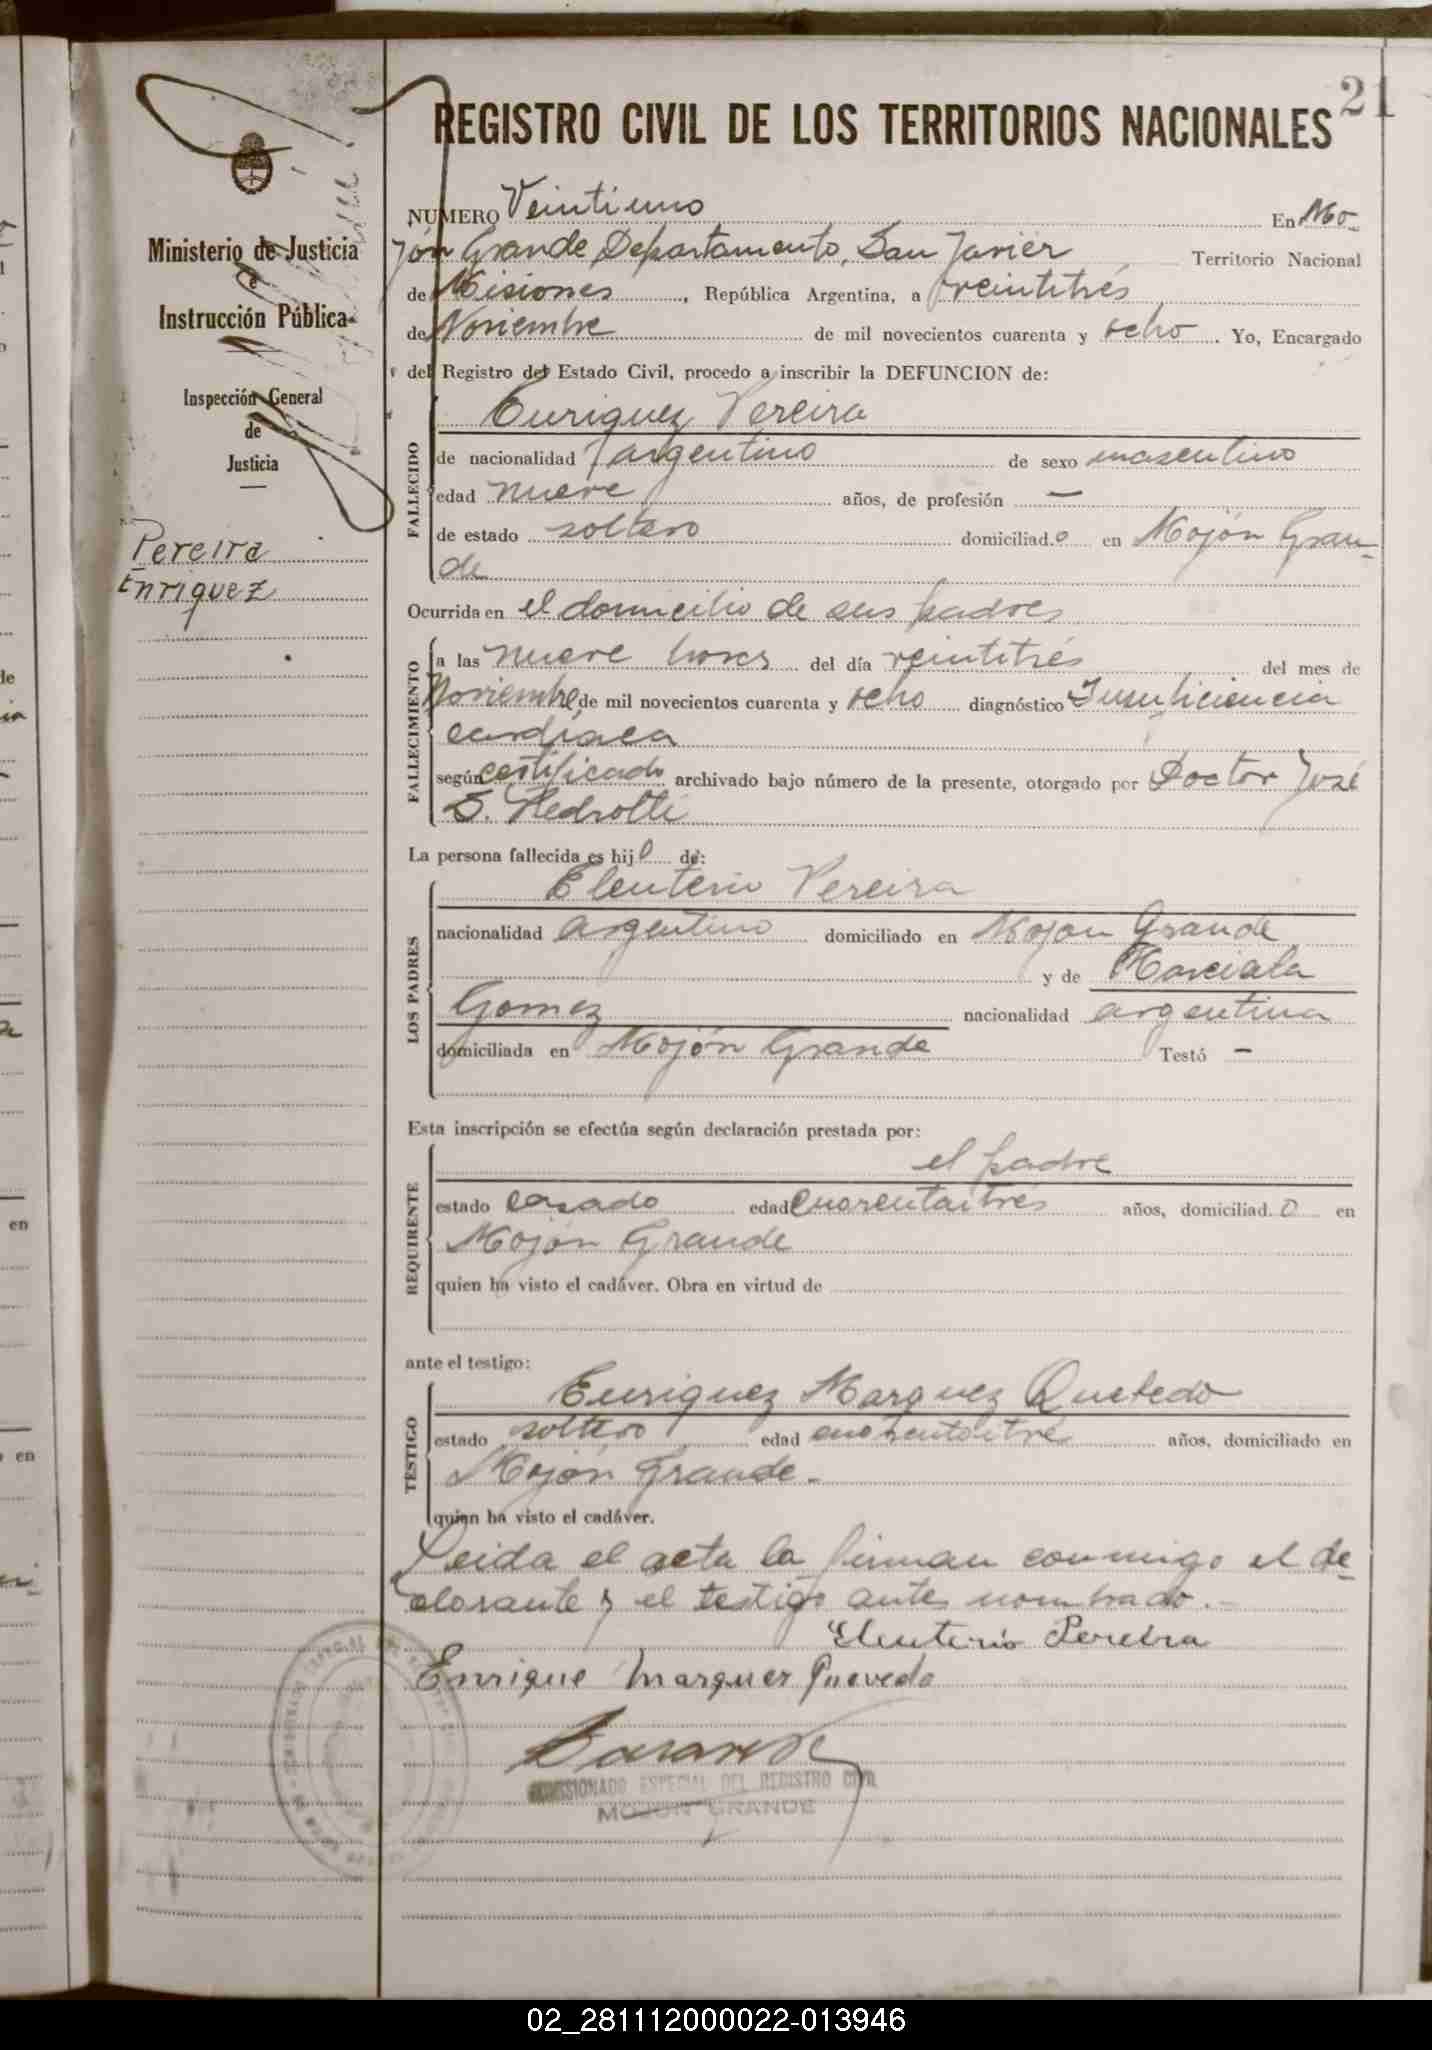 21
REGISTRO CIVIL DE LOS TERRITORIOS NACIONALES
Ministerio de Justicia
e
Instrucción Pública
Inspección General
de
Justicia
Pereira
Enriquez
NUMERO Veintiuno En Mo-
jón Grande Departamento, San Javier Territorio Nacional
de Misiones, República Argentina, a veintitrés
de Noviembre de mil novecientos cuarenta y ocho. Yo, Encargado
del Registro del Estado Civil, procedo a inscribir la DEFUNCION de:
FALLECIDO
Enriquez Pereira
de nacionalidad argentino de sexo masculino
edad nueve años, de profesión —
de estado soltero domiciliad.o en Mojón Gran-
de
Ocurrida en el domicilio de sus padres
FALLECIMIENTO
a las nueve horas del día veintitrés del mes de
Noviembre de mil novecientos cuarenta y ocho diagnóstico Insuficiencia
cardíaca
según certificado archivado bajo número de la presente, otorgado por Doctor José
La persona fallecida es hijo de:
LOS PADRES
Eleuterio Pereira
nacionalidad argentino domiciliado en Mojon Grande
y de Marciala
Gomez nacionalidad argentina
domiciliada en Mojón Grande Testó —
Esta inscripción se efectúa según declaración prestada por:
REQUIRENTE
el padre
estado casado edad cuarentaitrés años, domiciliad.o en
Mojón Grande
quien ha visto el cadáver. Obra en virtud de
ante el testigo:
TESTIGO
Enriquez Marquez Quebedo
estado soltero edad cuarentaitrés años, domiciliado en
Mojón Grande.-
quien ha visto el cadáver.
Leida el acta la firman conmigo el de-
clarante y el testigo antes nombrado.-
Eleuterio Pereira
Enrique Marquez Quevedo
COMISIONADO ESPECIAL DEL REGISTRO CIVIL
MOJON GRANDE
02_281112000022-013946